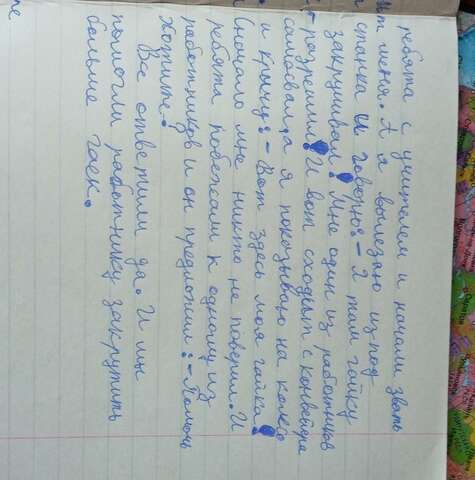 ребята с учителем и начали звать
меня. А я вылезаю из под
станка И говорю: - Я там гайку
закручивал! Мне один из работников
разрешил! И вот сходит с конвейера
самосвал, а я показываю на колесо
и кричу: - Вот здесь моя гайка!
Сначало мне никто не поверил. И
ребята побежали к одному из
работников и он предложил: - Помочь
хотите.
Все ответили да. И мы
помогли работнику закрутить
больше гаек.